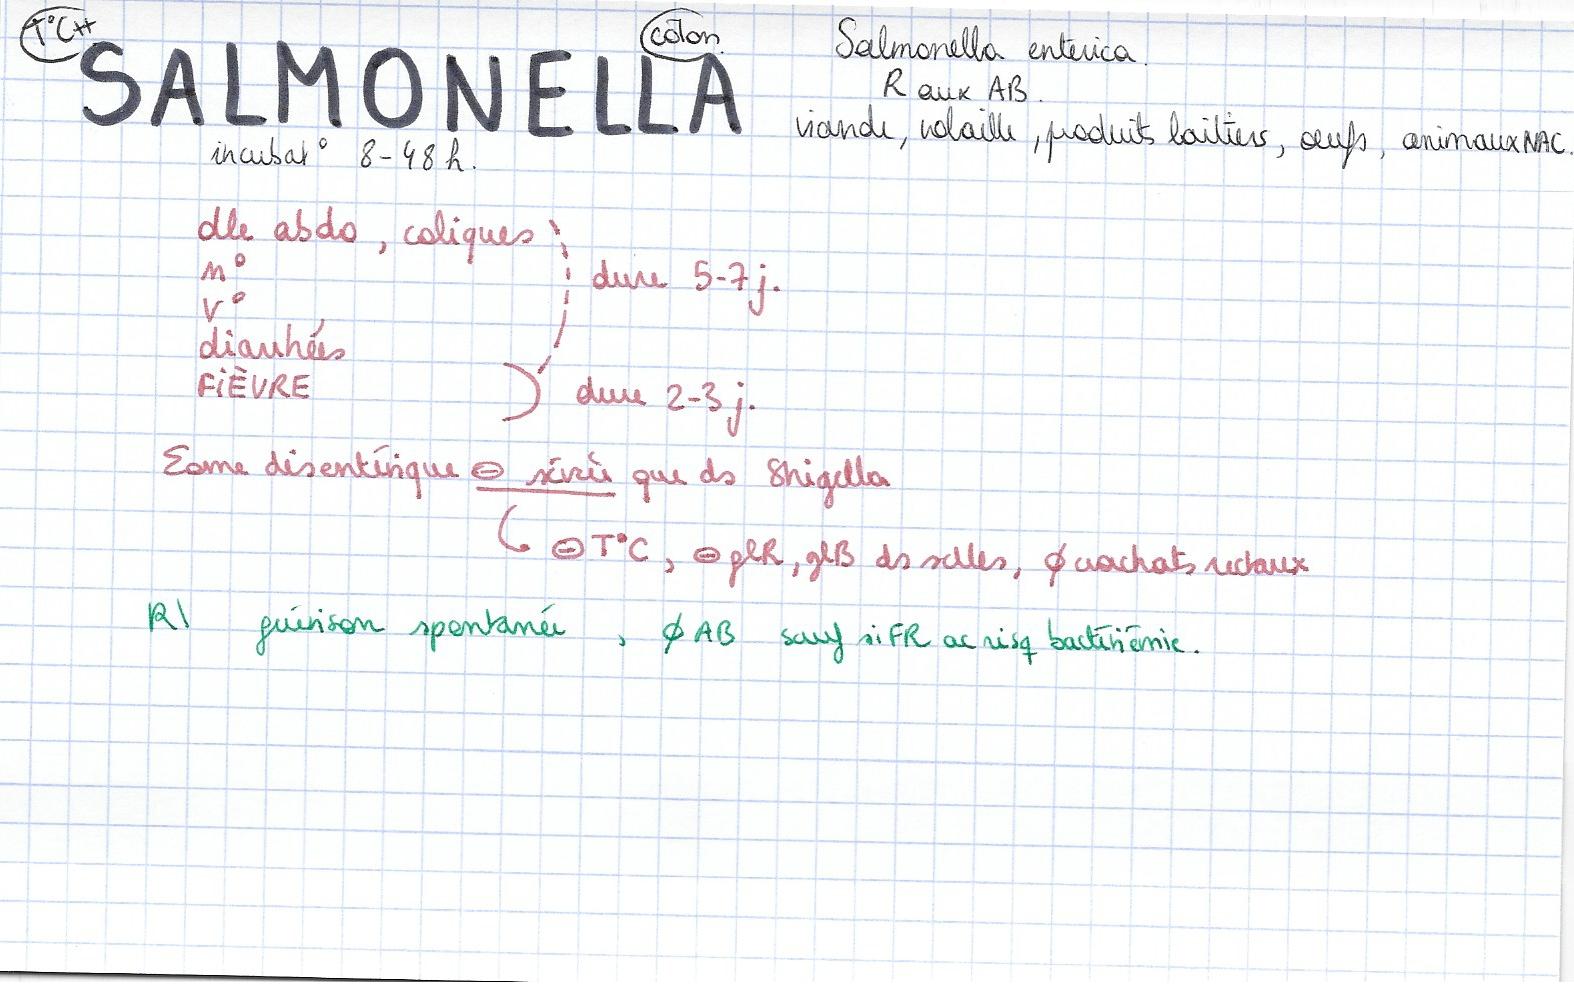 T°C++
côlon.
SALMONELLA
Salmonella enterica.
R aux AB.
viande, volaille, produits laitiers, œufs, animaux NAC.
incubat° 8-48h.
dle abdo, coliques
n°
V°
dure 5-7j.
diarrhées
FiÈVRE
dure 2-3j.
disentérique ⊖ sévère que ds Shigella
⊖ T°C, ⊖ glR, glB ds selles, ∅ crachats rectaux
R\ guérison spontanée, ∅ AB sauf si FR ac risq bactériémie.